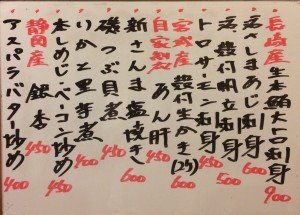 長崎産 生本鮪大トロ刺身 900
活〆さしまあじ刺身 600
活殻付帆立刺身 500
トロサーモン刺身 450
宮城産 殻付生かき(2ヶ) 600
自家製 あん肝 450
新さんま塩焼き 600
磯つぶ貝煮 450
いかと里芋煮 400
本しめじベーコン炒め 450
静岡産 銀杏 450
アスパラバター炒め 400